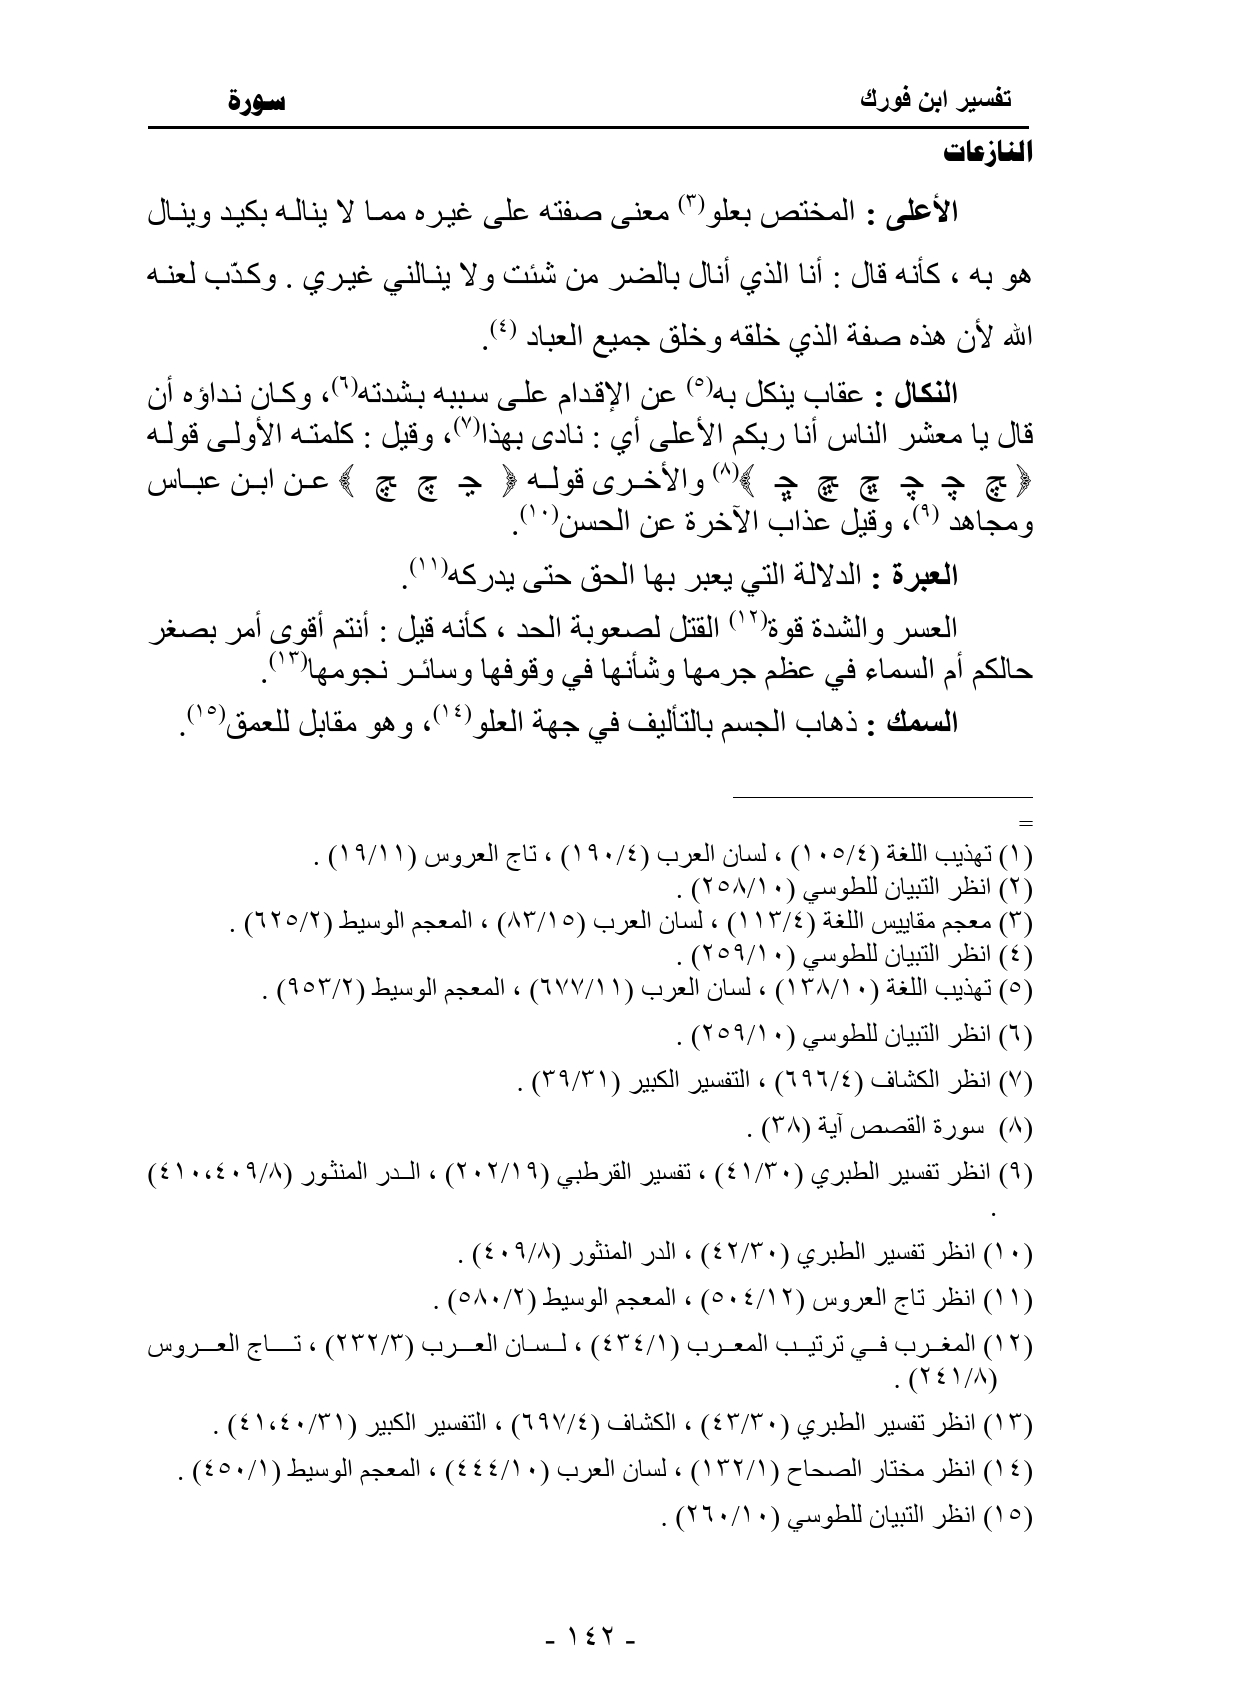 تفسير ابن فورك سورة
النازعات
الأعلى : المختص بعلو(٣) معنى صفته على غيره مما لا يناله بكيد وينال
هو به ، كأنه قال : أنا الذي أنال بالضر من شئت ولا ينالني غيري . وكذّب لعنه
الله لأن هذه صفة الذي خلقه وخلق جميع العباد (٤).
النكال : عقاب ينكل به(٥) عن الإقدام على سببه بشدته(٦)، وكان نداؤه أن
قال يا معشر الناس أنا ربكم الأعلى أي : نادى بهذا(٧)، وقيل : كلمته الأولى قوله
﴿ ڃ ڃ چ چ چ چ ڇ ﴾(٨) والأخرى قوله ﴿ ڄ ڃ ڃ ﴾ عن ابن عباس
ومجاهد (٩)، وقيل عذاب الآخرة عن الحسن(١٠).
العبرة : الدلالة التي يعبر بها الحق حتى يدركه(١١).
العسر والشدة قوة(١٢) القتل لصعوبة الحد ، كأنه قيل : أنتم أقوى أمر بصغر
حالكم أم السماء في عظم جرمها وشأنها في وقوفها وسائر نجومها(١٣).
السمك : ذهاب الجسم بالتأليف في جهة العلو(١٤)، وهو مقابل للعمق(١٥).
=
(١) تهذيب اللغة (١٠٥/٤) ، لسان العرب (١٩٠/٤) ، تاج العروس (١٩/١١) .
(٢) انظر التبيان للطوسي (٢٥٨/١٠) .
(٣) معجم مقاييس اللغة (١١٣/٤) ، لسان العرب (٨٣/١٥) ، المعجم الوسيط (٦٢٥/٢) .
(٤) انظر التبيان للطوسي (٢٥٩/١٠) .
(٥) تهذيب اللغة (١٣٨/١٠) ، لسان العرب (٦٧٧/١١) ، المعجم الوسيط (٩٥٣/٢) .
(٦) انظر التبيان للطوسي (٢٥٩/١٠) .
(٧) انظر الكشاف (٦٩٦/٤) ، التفسير الكبير (٣٩/٣١) .
(٨) سورة القصص آية (٣٨) .
(٩) انظر تفسير الطبري (٤١/٣٠) ، تفسير القرطبي (٢٠٢/١٩) ، الدر المنثور (٤١٠،٤٠٩/٨)
.
(١٠) انظر تفسير الطبري (٤٢/٣٠) ، الدر المنثور (٤٠٩/٨) .
(١١) انظر تاج العروس (٥٠٤/١٢) ، المعجم الوسيط (٥٨٠/٢) .
(١٢) المغرب في ترتيب المعرب (٤٣٤/١) ، لسان العرب (٢٣٢/٣) ، تاج العروس
(٢٤١/٨) .
(١٣) انظر تفسير الطبري (٤٣/٣٠) ، الكشاف (٦٩٧/٤) ، التفسير الكبير (٤١،٤٠/٣١) .
(١٤) انظر مختار الصحاح (١٣٢/١) ، لسان العرب (٤٤٤/١٠) ، المعجم الوسيط (٤٥٠/١) .
(١٥) انظر التبيان للطوسي (٢٦٠/١٠) .
- ١٤٢ -